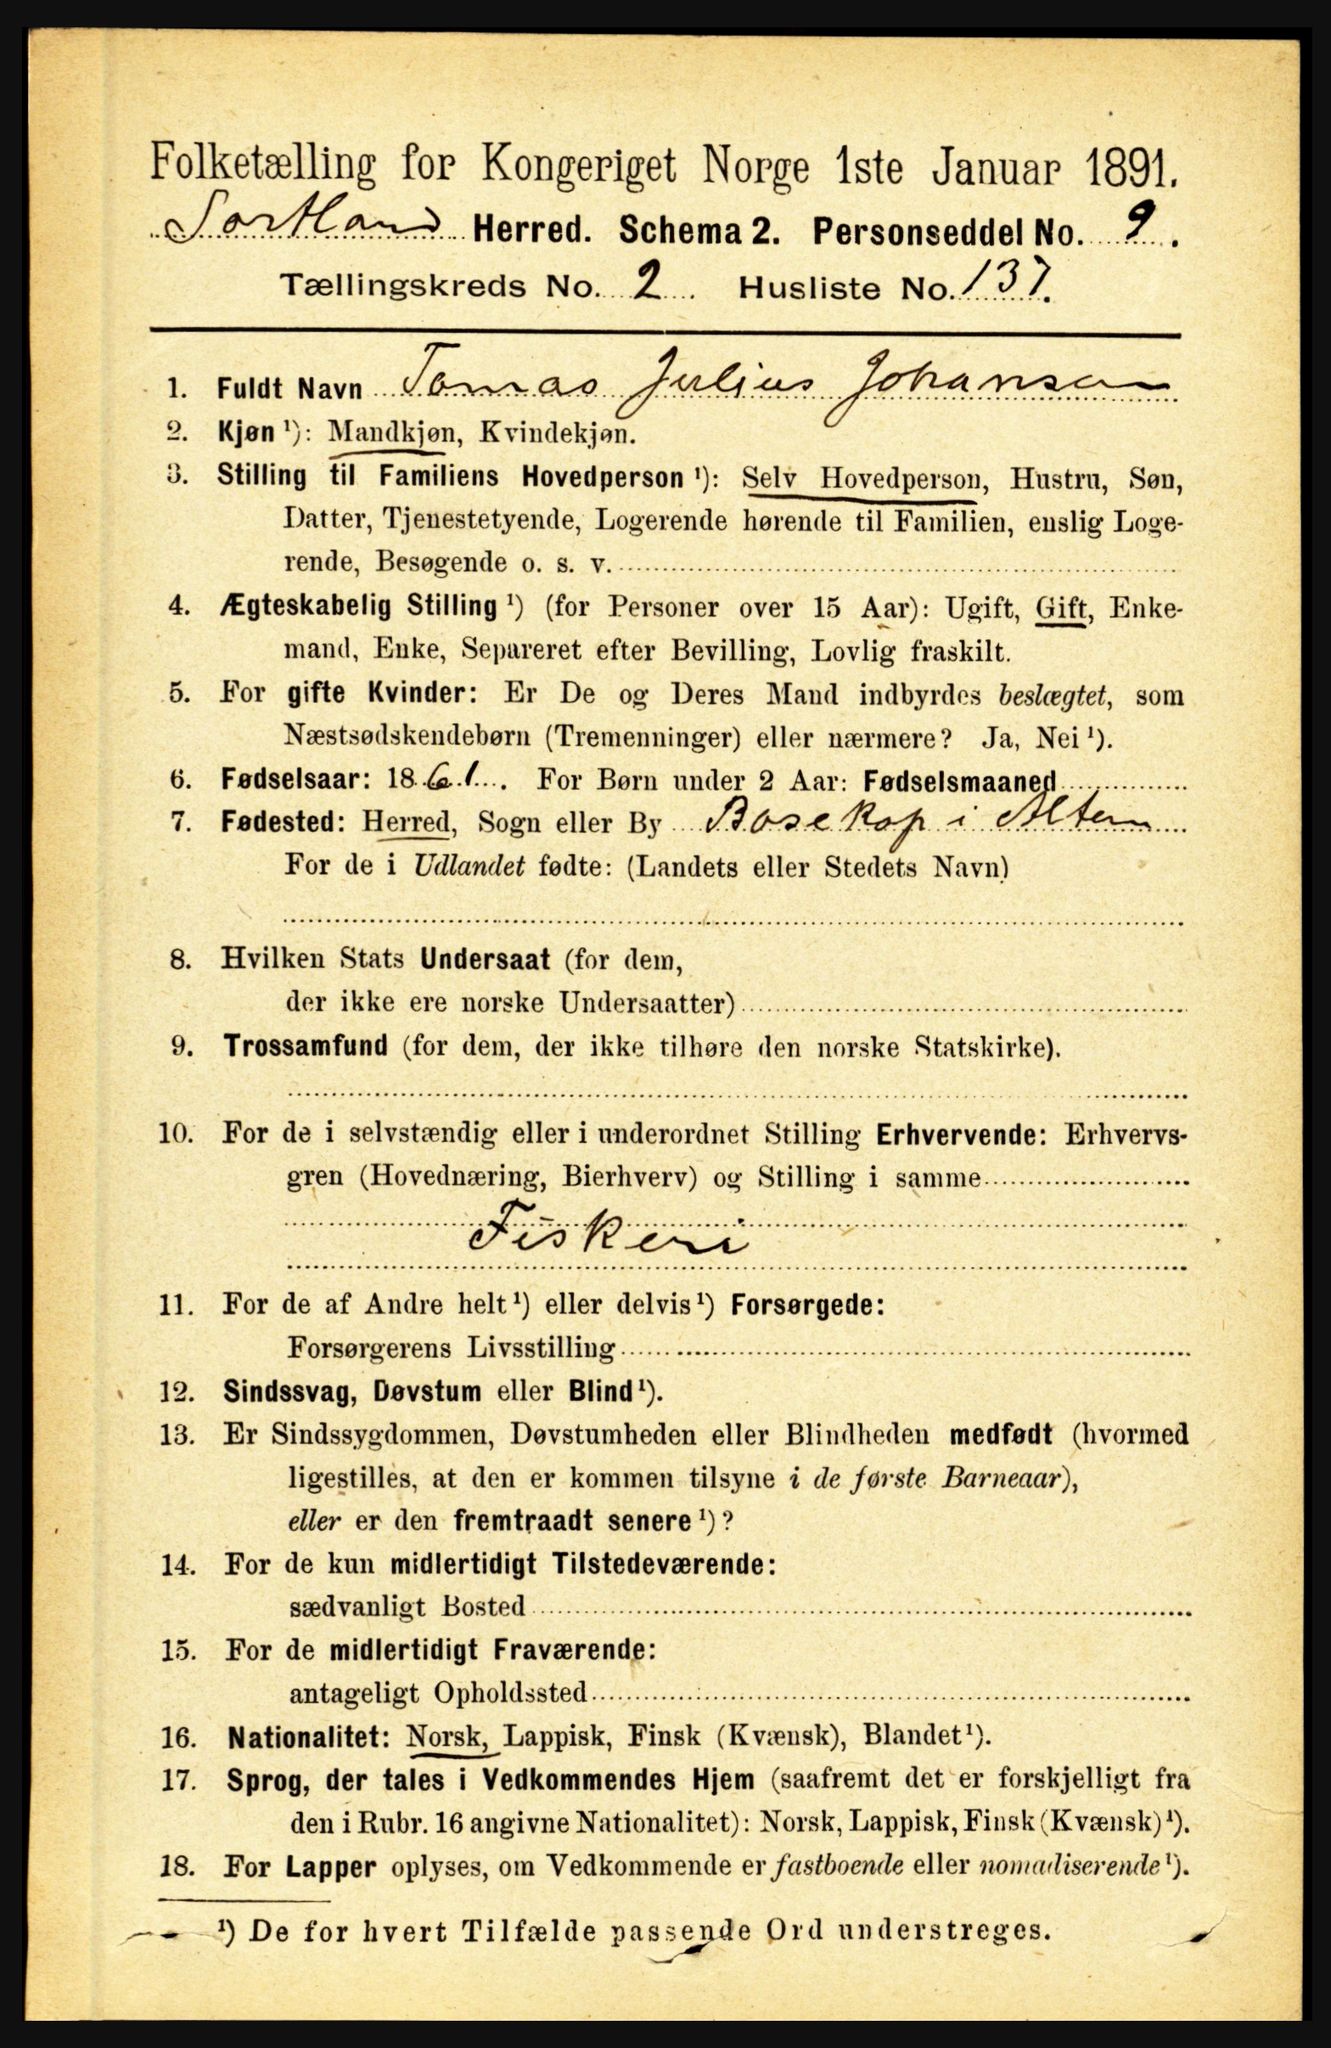 Folketælling for Kongeriget Norge 1ste Januar 1891.
Sortland Herred. Schema 2. Personseddel No. 9.
Tællingskreds No. 2 Husliste No. 137.
1. Fuldt Navn Tomas Julius Johansen
2. Kjøn ¹): Mandkjøn, Kvindekjøn.
3. Stilling til Familiens Hovedperson ¹): Selv Hovedperson, Hustru, Søn,
Datter, Tjenestetyende, Logerende hørende til Familien, enslig Loge-
rende, Besøgende o. s. v.
4. Ægteskabelig Stilling ¹) (for Personer over 15 Aar): Ugift, Gift, Enke-
mand, Enke, Separeret efter Bevilling, Lovlig fraskilt.
5. For gifte Kvinder: Er De og Deres Mand indbyrdes beslægtet, som
Næstsødskendebørn (Tremenninger) eller nærmere? Ja, Nei ¹).
6. Fødselsaar: 1861. For Børn under 2 Aar: Fødselsmaaned
7. Fødested: Herred, Sogn eller By Bosekop i Alten
For de i Udlandet fødte: (Landets eller Stedets Navn)
8. Hvilken Stats Undersaat (for dem,
der ikke ere norske Undersaatter)
9. Trossamfund (for dem, der ikke tilhøre den norske Statskirke).
10. For de i selvstændig eller i underordnet Stilling Erhvervende: Erhvervs-
gren (Hovednæring, Bierhverv) og Stilling i samme
Fiskeri
11. For de af Andre helt ¹) eller delvis ¹) Forsørgede:
Forsørgerens Livsstilling
12. Sindssvag, Døvstum eller Blind ¹).
13. Er Sindssygdommen, Døvstumheden eller Blindheden medfødt (hvormed
ligestilles, at den er kommen tilsyne i de første Barneaar),
eller er den fremtraadt senere ¹)?
14. For de kun midlertidigt Tilstedeværende:
sædvanligt Bosted
15. For de midlertidigt Fraværende:
antageligt Opholdssted
16. Nationalitet: Norsk, Lappisk, Finsk (Kvænsk), Blandet ¹).
17. Sprog, der tales i Vedkommendes Hjem (saafremt det er forskjelligt fra
den i Rubr. 16 angivne Nationalitet): Norsk, Lappisk, Finsk (Kvænsk) ¹).
18. For Lapper oplyses, om Vedkommende er fastboende eller nomadiserende ¹).
¹) De for hvert Tilfælde passende Ord understreges.